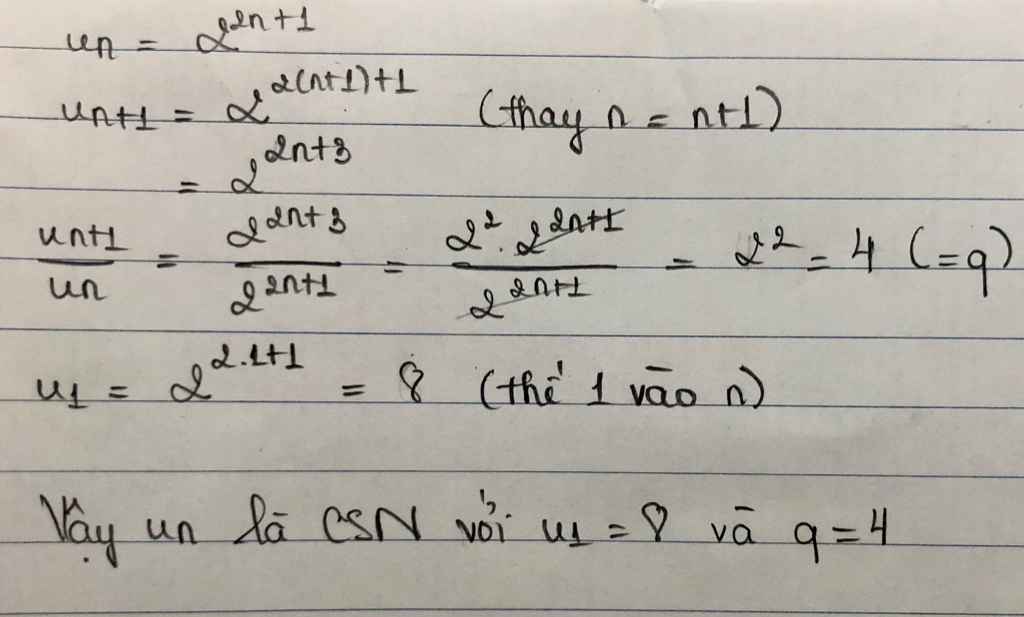 un = 2^{2n+1}
un+1 = 2^{2(n+1)+1} (thay n = n+1)
= 2^{2n+3}
\frac{un+1}{un} = \frac{2^{2n+3}}{2^{2n+1}} = \frac{2^2 . 2^{2n+1}}{2^{2n+1}} = 2^2 = 4 (=q)
u1 = 2^{2.1+1} = 8 (thế 1 vào n)
Vậy un là CSN với u1 = 8 và q = 4